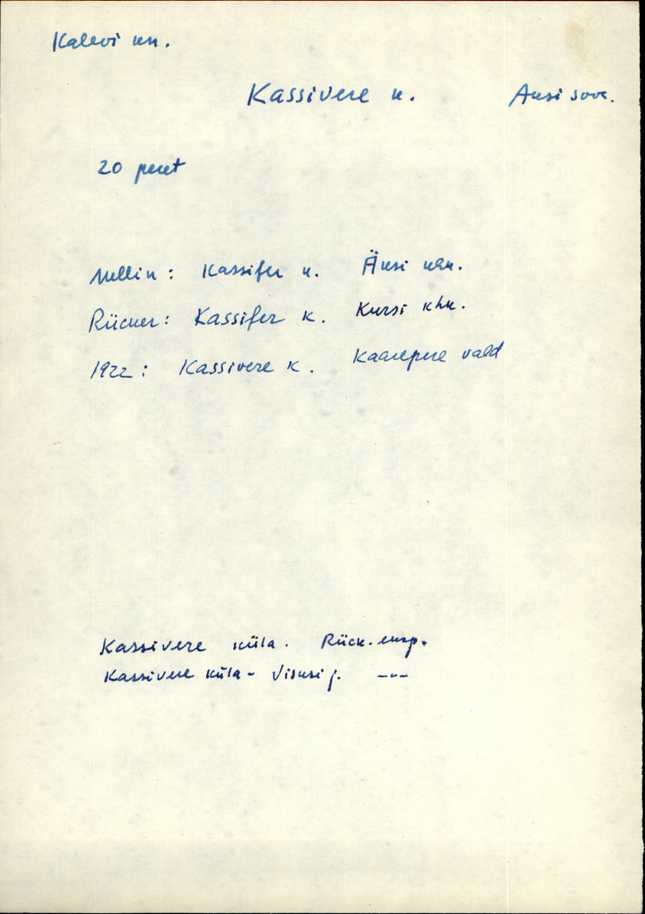 Kalevi kn.
Kassivere k. Aksi sovh.
20 peret
Mellin: Kassifer k. Äksi khk.
Rücker: Kassifer k. Kursi khk.
1922: Kassivere k. Kaarepere vald
Kassivere küla. Rück. eksp.
Kassivere küla - Visusi j. -"-